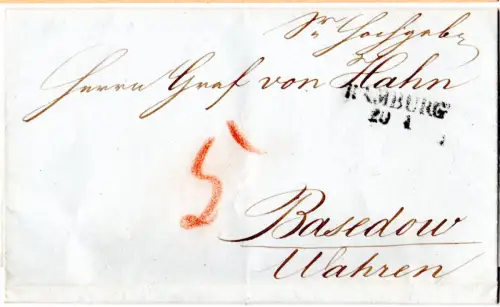 Sr Hochgebn
Herrn Graf von Hahn
HAMBURG
20 1
5
Basedow
Wahren